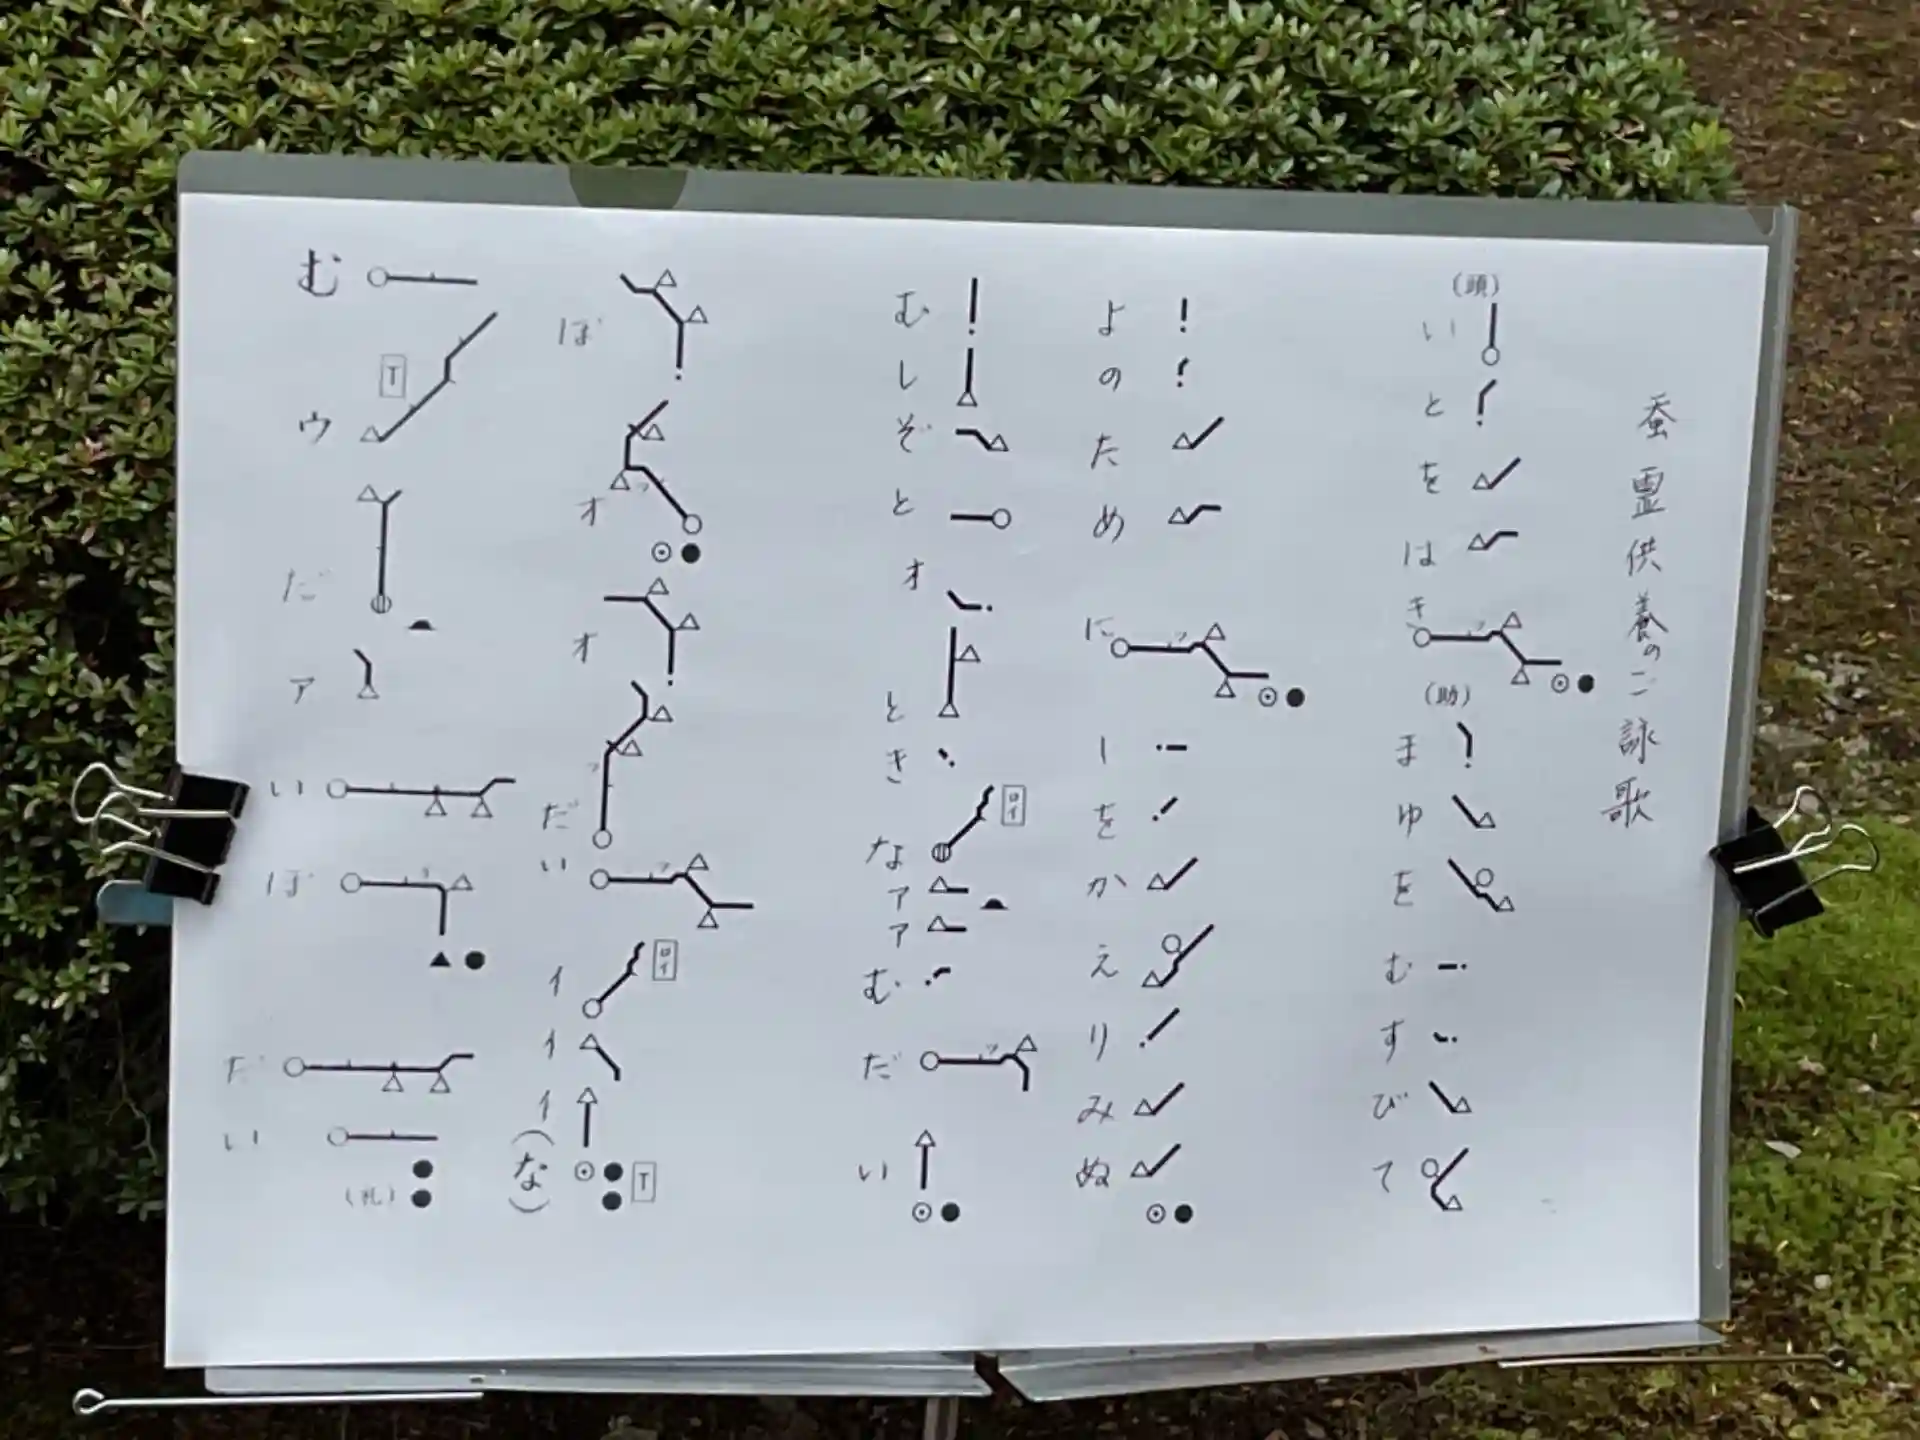 蚕霊供養のご詠歌
(頭)
いとをはき
(助)
まゆをむすびて
よのためにーをかえりみぬ
むしぞとオときなアアむだい
ぼオオだいイイイ(な)
ロイ
ロイ
T
むウだアいぼだい
T
(礼)